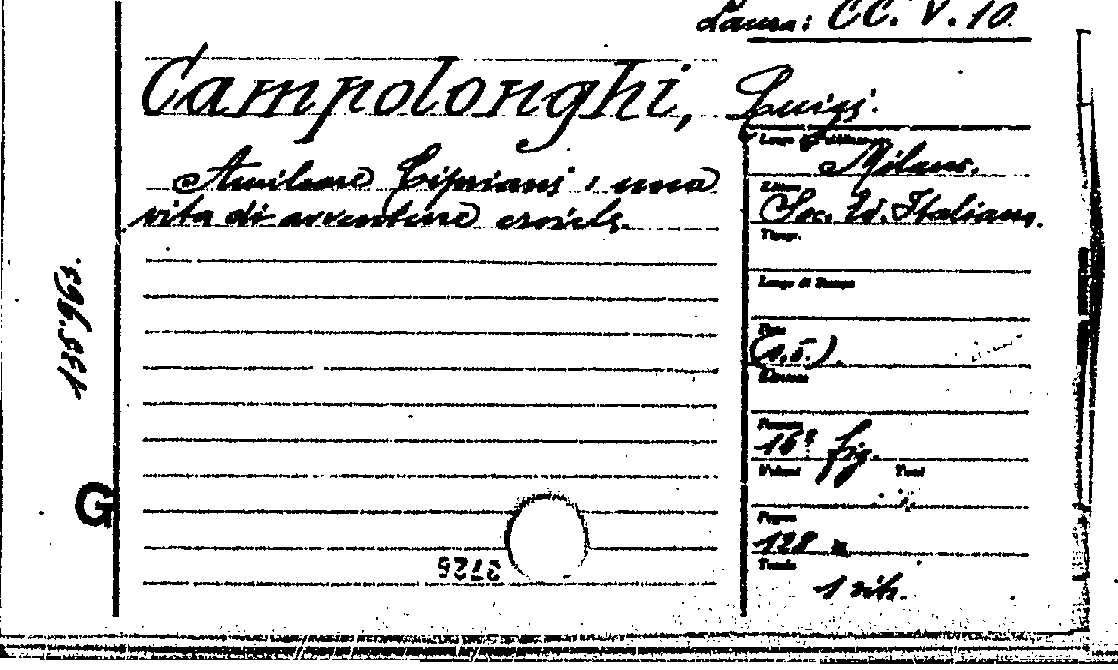 Laura: CC. V. 10
Campolonghi, Luigi.
Amilcare Cipriani : una
vita di avventure eroich.
Luogo di pubblicazione
Milano.
Editore
Soc. Ed. Italiana.
Tipogr.
Luogo di Stampa
Data
(s.d.).
Edizione
Formato
16° fig.
Volumi Tomi
Pagine
128
Tavole
1 rit.
135963
G